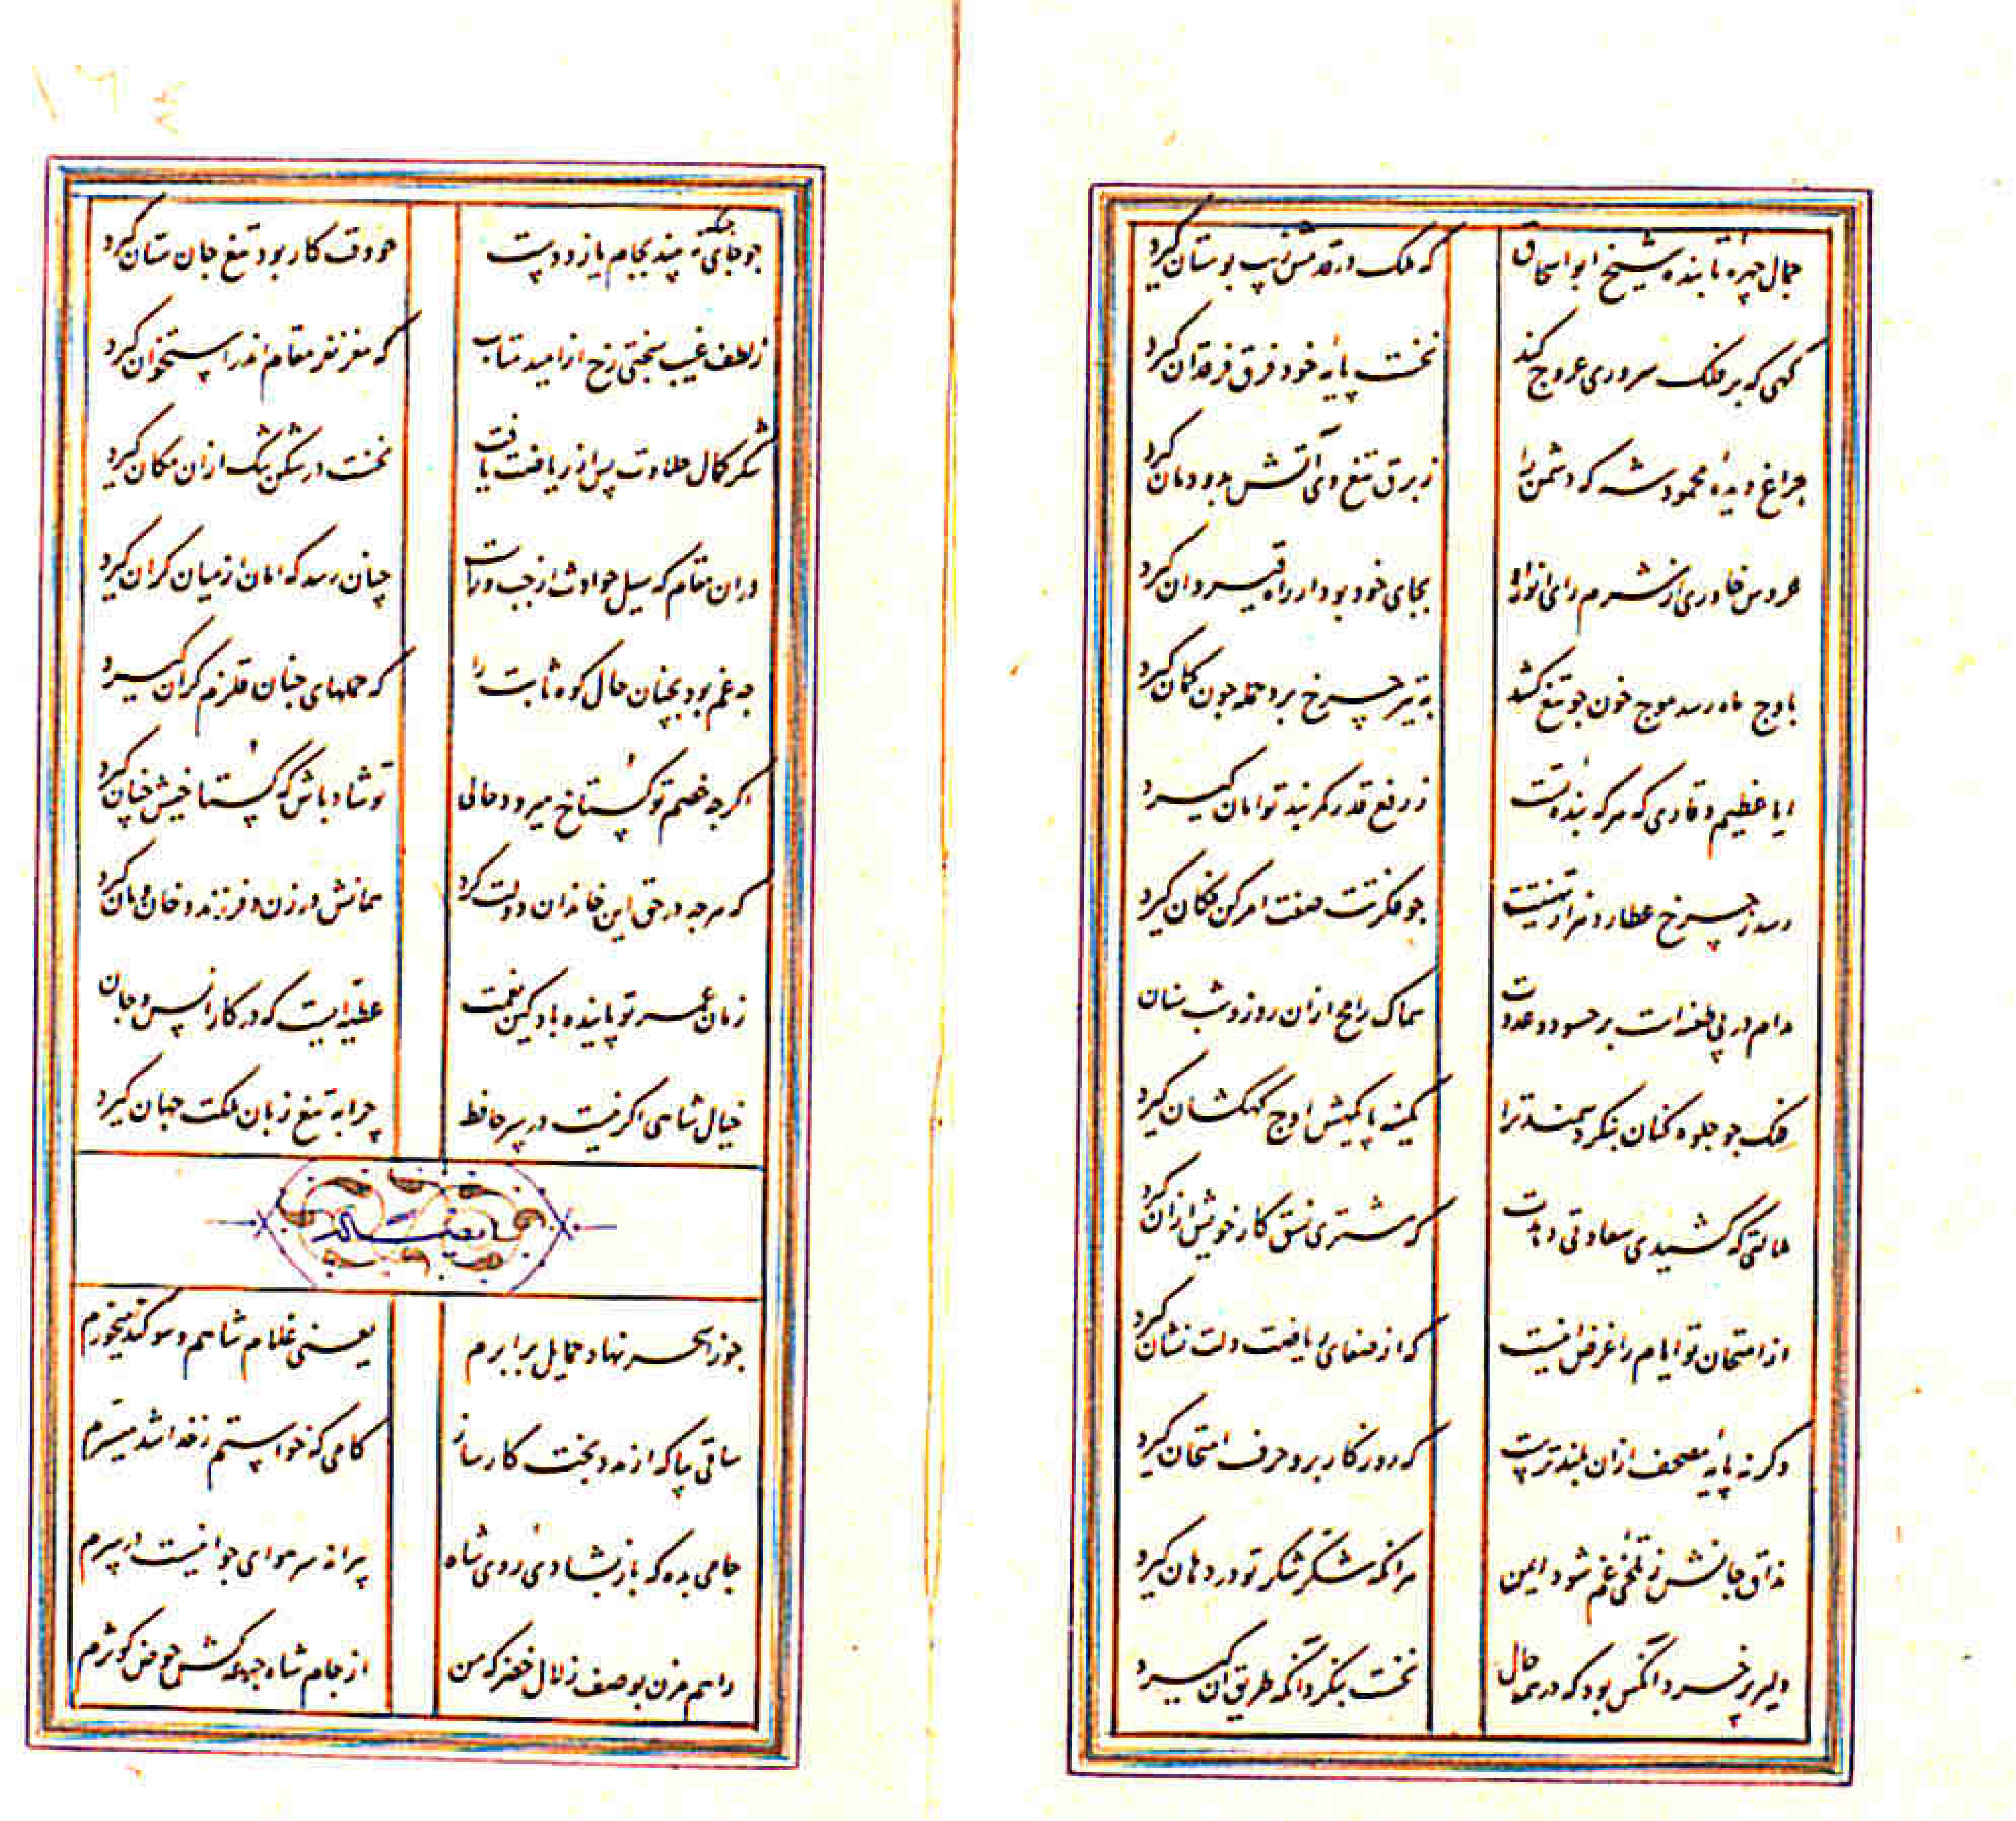 جمال چهره تابنده شیخ ابو اسحاق که ملک در قدمش زیب بوستان گیرد
گهی که بر فلک سروری عروج کند نخست پایه خود فرق فرقدان گیرد
چراغ دیده محمود شه که دشمن را ز برق تیغ وی آتش بدودمان گیرد
عروس خاوری از شرم رای انور او بجای خود بود ار راه قیروان گیرد
باوج ماه رسد موج خون جو تیغ کشد به تیر چرخ برد حمله جون کمان گیرد
ایا عظیم وقاری که هر که بنده تست ز رفع قدر کمربند توامان گیرد
رسد ز چرخ عطارد هزار تهنیتت جو فکرتت صفت امر کن فکان گیرد
مدام در پی طعنه است بر حسود و عدوت سماک رامح ازان روز و شب سنان
فلک جو جلوه کنان بنگرد سمند ترا کمینه پایگهش اوج کهکشان گیرد
ملالتی که کشیدی سعادتی دهدت که مشتری نسق کار خویش ازان گیرد
از امتحان تو ایام را غرض انیست که از صفای ریاضت دلت نشان گیرد
وگرنه پایه مصحف ازان بلندترست که روزگار برو حرف امتحان گیرد
مذاق جانش ز تلخی غم شود ایمن هر آنکه شکر شکر تو در دهان گیرد
دلیر پر خرد آنکس بود که در همه حال نخست بنگرد آنگه طریق آن گیرد
جو جای جنگ نه بیند بجام یازد دست جو وقت کار بود تیغ جان ستان گیرد
ز لطف غیب بسختی رخ از امید متاب که مغز نغز مقام اندر استخوان گیرد
شکر کمال حلاوت پس از ریاضت یافت نخست در شکن تنگ ازان مکان گیرد
دران مقام که سیل حوادث از جب و راست چنان رسد که امان از میان کران گیرد
چه غم بود بچنان حال کوه ثابت را که حملهای چنان قلزم گران گیرد
اگر چه خصم تو گستاخ میرود حالی تو شاد باش که گستاخیش چنان گیرد
که هر چه در حق این خاندان دولت کرد سمانش در زن و فرزند و خان و مان گیرد
زمان عمر تو پاینده باد کین نعمت عطیه ایست که در کار انس و جان
خیال شاهی اگر نیست در سر حافظ چرا به تیغ زبان ملکت جهان گیرد
جوزا سحر نهاد حمایل برابرم یعنی غلام شاهم و سوگند میخورم
ساقی بیا که از مدد بخت کارساز کامی که خواستم ز خدا شد میسرم
جامی بده که باز بشادی روی شاه پیرانه سر هوای جوانیست در سرم
راهم مزن بوصف زلال خضر که من از جام شاه جرعه کش حوض کوثرم